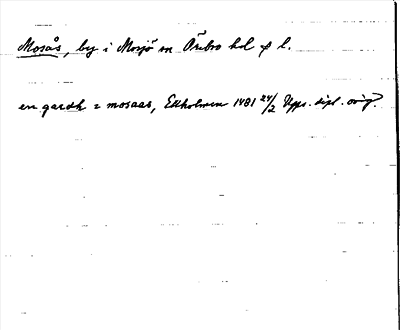 Mosås, by i Mosjö sn Örebro hd o l.
en gardh i mosaas, Ekholmen 1481 24/2 Upps. dipl. orig.